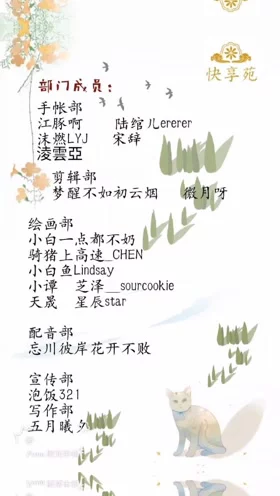 快享苑
部门成员：
手帐部
江豚啊 陆绾儿ererer
沫燃LYJ 宋辞
淩雲亞
剪辑部
梦醒不如初云烟 微月呀
绘画部
小白一点都不奶
骑猪上高速_CHEN
小白鱼Lindsay
小谭 芝泽__sourcookie
天晟 星辰star
配音部
忘川彼岸花开不败
宣传部
泡饭321
写作部
五月曦夕